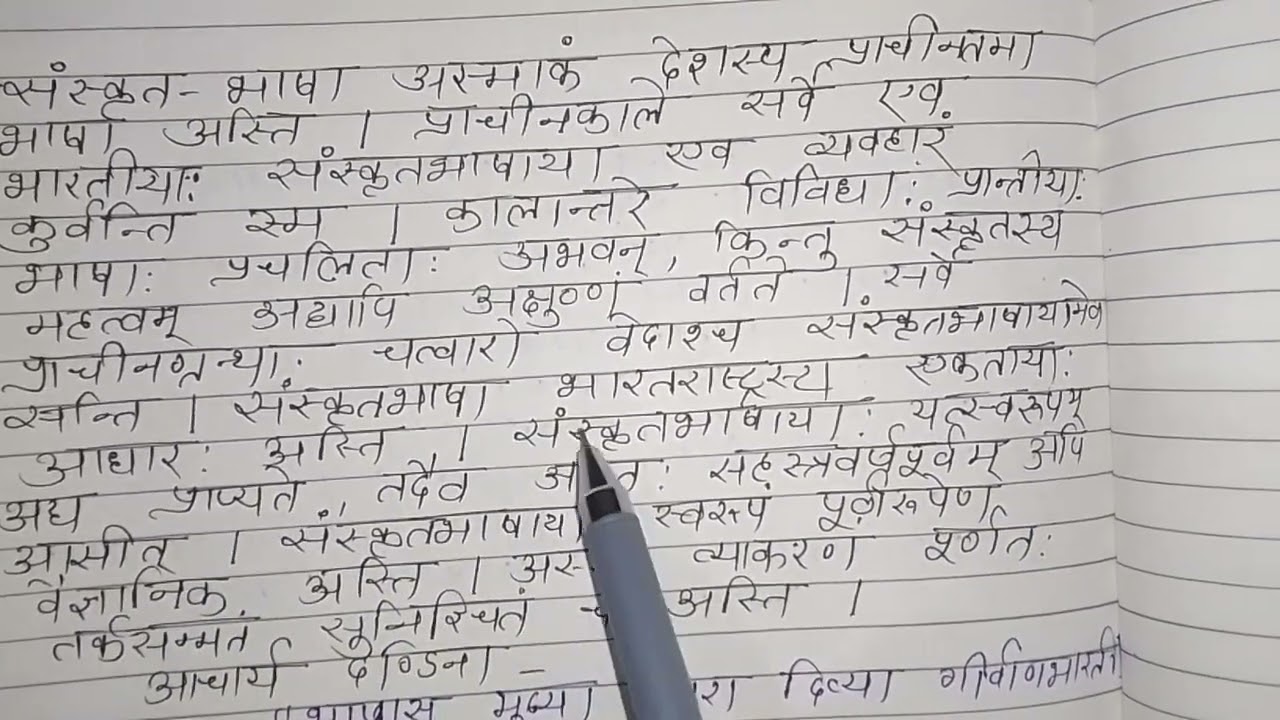 संस्कृत-भाषा अस्माकं देशस्य प्राचीनतमा
भाषा अस्ति । प्राचीनकाले सर्वे एव
भारतीयाः संस्कृतभाषाया एव व्यवहारं
कुर्वन्ति स्म । कालान्तरे विविधाः प्रान्तीयाः
भाषाः प्रचलिताः अभवन्, किन्तु संस्कृतस्य
महत्वम् अद्यापि अक्षुण्णं वर्तते । सर्वे
प्राचीनग्रन्थाः चत्वारो वेदाश्च संस्कृतभाषायामेव
सन्ति । संस्कृतभाषा भारतराष्ट्रस्य एकतायाः
आधारः अस्ति । संस्कृतभाषायाः यत्स्वरूपम्
अद्य प्राप्यते, तदैव सहस्त्रवर्षपूर्वम् अपि
आसीत् । संस्कृतभाषाया स्वरूपं पूर्णरूपेण
वैज्ञानिकं अस्ति । व्याकरण पूर्णतः
तर्कसम्मतं सुनिश्चितं अस्ति ।
आचार्य दण्डिना -
दिव्या गीर्वाणभारती